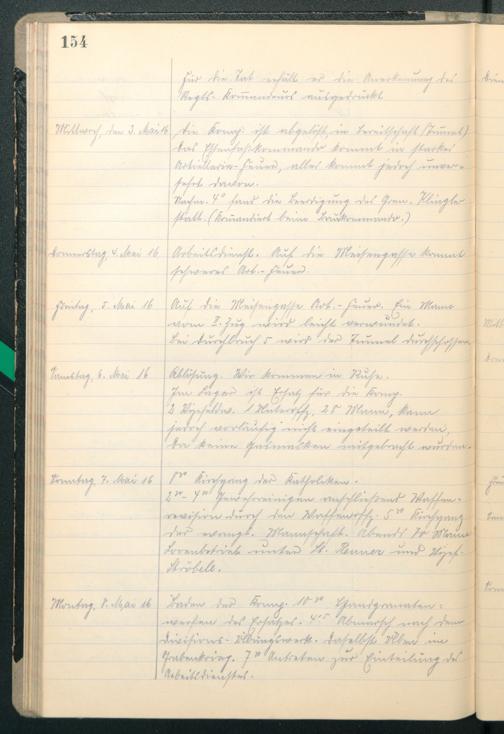 154
Für die Tat erhält er die Anerkennung des
Regts. Kommandeurs ausgedrückt
Mittwoch, den 3. Mai 16
Die Komp. ist abgelöst, in Bereitschaft (Tunnel)
Das Essenholkommando kommt in starkes
Artillerie-Feuer, alles kommt jedoch unver-
sehrt davon.
Nachm. 4° fand die Beerdigung des Gren. Klingler
statt. (Komandiert beim Baukommando.)
Donnerstag, 4. Mai 16
Arbeitsdienst. Auf die Meisengasse kommt
schweres Art.-Feuer.
Freitag, 5. Mai 16
Auf die Meisengasse Art.-Feuer. Ein Mann
vom 2. Zug wird leicht verwundet.
Bei Durchbruch 5 wird der Tunnel durchschossen.
Samstag, 6. Mai 16
Ablösung. Wir kommen in Ruhe.
Im Lager ist Ersatz für die Komp.
2 Vizefeldw. 1 Unteroffz. 25 Mann, kann
jedoch vorläufig nicht eingeteilt werden,
da keine Gasmasken mitgebracht wurden.
Sonntag, 7. Mai 16
Kirchgang der Katholiken.
Gewehrreinigen anschließend Waffen-
revision durch den Waffenoffz. Kirchgang
der evangl. Mannschaft. Abends Mann
unter Lt. Renner und Vizef.
Ströbele.
Montag, 8. Mai 16
Baden der Komp. Handgranaten-
werfen des Ersatzes. Abmarsch nach dem
Divisions-Übungswerk. Daselbst Üben im
Grabenkrieg. Antreten zur Einteilung des
Arbeitsdienstes.